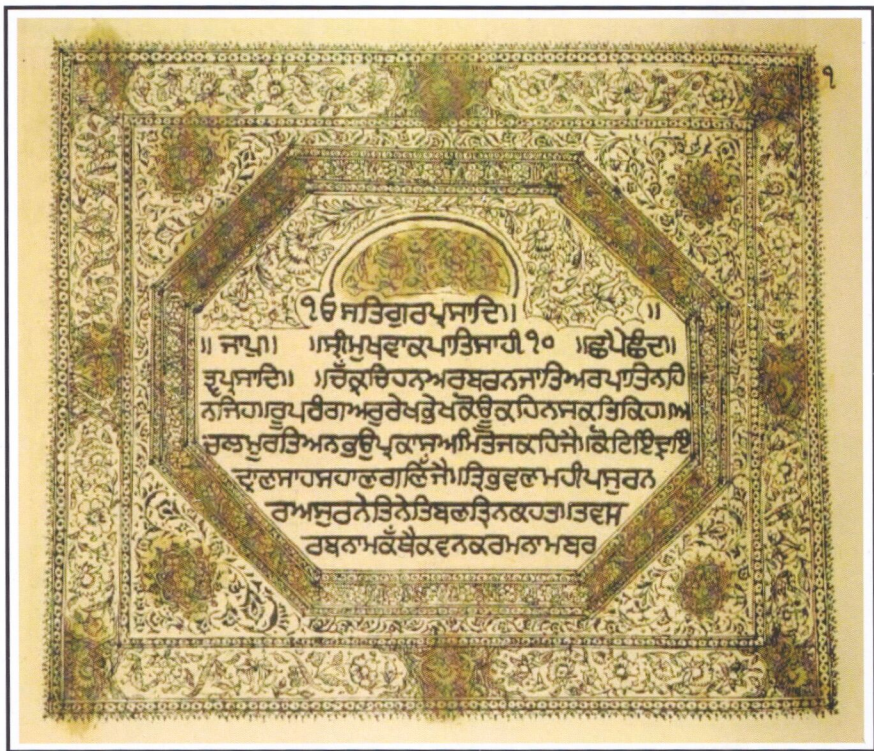 ੧
੧ੳ ਸਤਿਗੁਰਪ੍ਰਸਾਦਿ॥ ॥
॥ ਜਾਪੁ॥ ॥ਸ੍ਰੀਮੁਖਵਾਕਪਾਤਿਸਾਹੀ੧੦ ॥ਛਪੇਛੰਦ॥
ਤ੍ਵਪ੍ਰਸਾਦਿ॥ ॥ਚੱਕ੍ਰਚਿਹਨਅਰਬਰਨਜਾਤਿਅਰਪਾਤਿਨਹਿ
ਨਜਿਹ॥ਰੂਪਰੰਗਅਰੁਰੇਖਭੇਖਕੋਊਕਹਿਨਸਕਤਿਕਿਹ॥ਅ
ਚਲਮੂਰਤਿਅਨਭਉਪ੍ਰਕਾਸਅਮਿਤੋਜਕਹਿਜੈ॥ਕੋਟਿਇੰਦ੍ਰਇੰ
ਦ੍ਰਾਣਸਾਹਸਹਾਣਗਣਿੱਜੈ॥ਤ੍ਰਿਭਵਣਮਹੀਪਸੁਰਨ
ਰਅਸੁਰਨੇਤਿਨੇਤਿਬਣਤ੍ਰਿਨਕਹਤ॥ਤਵਸ
ਰਬਨਾਮਕੱਥੈਕਵਨਕਰਮਨਾਮਬਰ